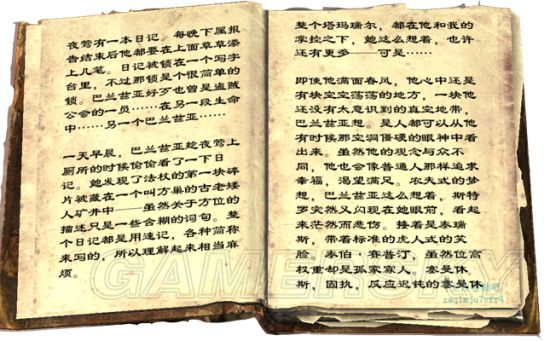 夜莺有一本日记。每晚下属报
告结束后他都要在上面草草添
上几笔。日记被锁在一个写字
台里，不过那锁是个很简单的
锁。巴兰兹亚好歹也曾是盗贼
公会的一员……在另一段生命
中……另一个巴兰兹亚……
一天早晨，巴兰兹亚趁夜莺上
厕所的时候偷偷看了一下日
记。她发现了法杖的第一块碎
片被藏在一个叫方巢的古老矮
人矿井中——虽然关于方位的
描述只是一些含糊的词句。整
个日记都是用速记，各种简称
来写的，所以理解起来相当麻
烦。
整个塔玛瑞尔，都在他和我的
掌控之下，她这么想着，也许
还有更多——可是……
即使他满面春风，他心中还是
有块空空荡荡的地方，一块他
还没有太意识到的真空地带，
巴兰兹亚想。是人都可以从他
有时候那空洞僵硬的眼神中看
出来。虽然他的观念与众不
同，他也会像普通人那样追求
幸福，渴望满足。农夫式的梦
想，巴兰兹亚这么想着，斯特
罗突然又闪现在她眼前，看起
来茫然而悲伤。接着是泰瑞
斯，带着标准的虎人式的笑
脸。泰伯·赛普汀，虽然位高
权重却是孤家寡人。塞曼休
斯，固执，反应迟钝的塞曼休
GAMERSKY
zaqimju7vfr4